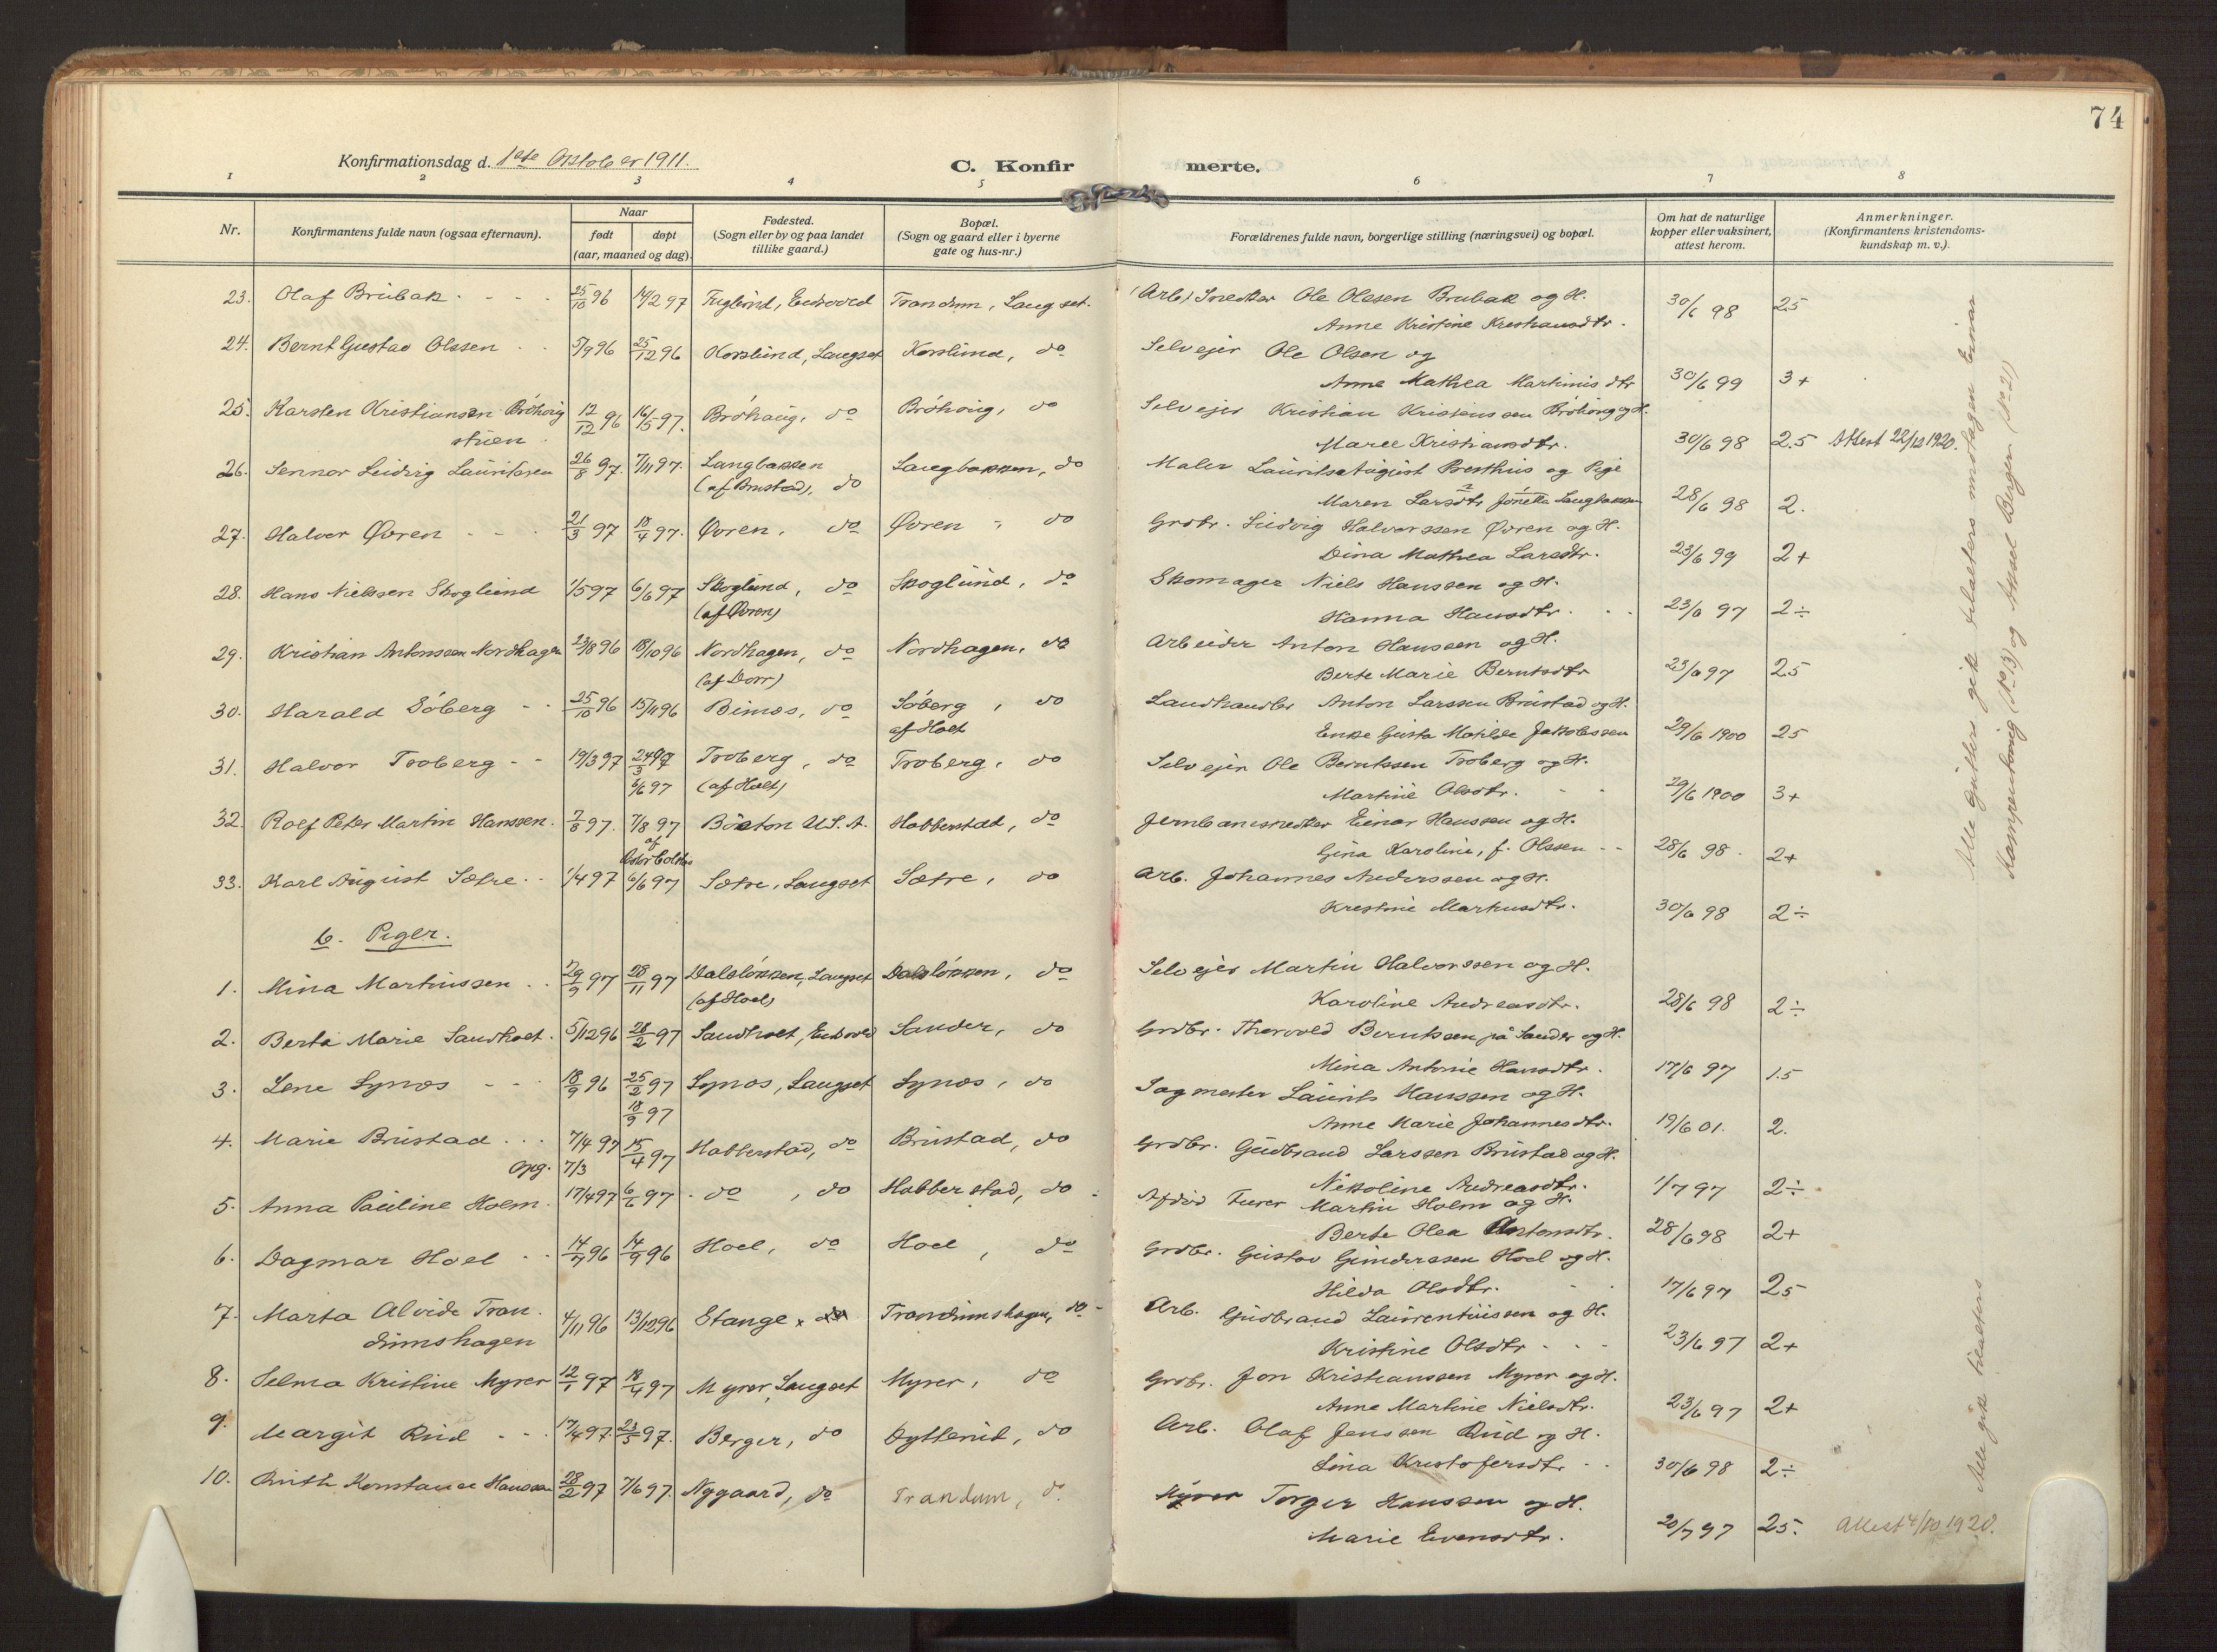 74
Konfirmationsdag d. 1ste Oktober 1911.
C. Konfirmerte.
1 2 3 4 5 6 7 8
Nr.
Konfirmantens fulde navn (ogsaa efternavn).
Naar
født
døpt
(aar, maaned og dag).
Fødested.
(Sogn eller by og paa landet
tillike gaard.)
Bopæl.
(Sogn og gaard eller i byerne
gate og hus-nr.)
Forældrenes fulde navn, borgerlige stilling (næringsvei) og bopæl.
Om hat de naturlige
kopper eller vaksinert,
attest herom.
Anmerkninger.
(Konfirmantens kristendoms-
kundskap m. v.).
23. Olaf Brubak 25/10 96 14/2 97 Fuglund, Eidsvold Trandum, Langset. (Arb) Snedker Ole Olssen Brubak og H.
Anne Kristine Kristiansdtr. 30/6 98 2.5
24. Bernt Gustav Olssen 5/9 96 25/12 96 Korslund, Langset Korslund, do Selveier Ole Olsen og
Anne Mathea Martinisdtr 30/6 99 3+
25. Karsten Kristiansen Bröhaug 12/12 96 16/5 97. Bröhaug, do Bröhaug, do Selveier Kristian Kristenssen Bröhaug og H.
stuen. Maree Kristiansdtr. 30/6 98 2.5 Attest 22/12 1920.
26. Sennar Ludvig Lauritssen 26/8 97. 7/11 97. Langbakken Langbakken, do Maler Laurits August Presthus og Pige
(af Brustad), do Maren Larsdtr Jonetta Langbakken 28/6 98 2.
27. Halvor Øvren 21/3 97 18/4 97. Øvren, do Øvren, do Grdbr. Ludvig Halvorssen Øvren og H.
Dina Mathea Larsdtr. 23/6 99 2+
28. Hans Nielssen Skoglund 1/5 97 6/6 97 Skoglund, do Skoglund, do Skomager Niels Hanssen og H.
(af Øvren) Hanna Hansdtr. 23/6 97 2÷
29. Kristian Antonssen Nordhagen 23/8 96 18/10 96 Nordhagen, do Nordhagen, do Arbeider Anton Hanssen og H.
(af Dorr) Berte Marie Berntsdtr 23/6 97 2.5
30. Harald Söberg 25/10 96 15/11 96 Bimos, do Söberg, do Landhandler Anton Larssen Brustad og H.
af Holt Enke Gusta Matilde Jakobssen 29/6 1900 2.5
31. Halvor Troberg 19/3 97 24/3 97 Troberg, do Troberg, do Selveier Ole Berntssen Troberg og H.
6/6 97 (af Holt) Martine Olsdtr. 29/6 1900 3+
32. Rolf Peter Martin Hanssen. 7/8 97. 7/8 97 Boston U.S.A. Habberstad, do Jernbanesnedker Einar Hanssen og H.
af Gina Karoline, f. Olssen 28/6 98. 2+
33. Karl August Sætre 1/4 97 6/6 97 Sætre, Langset Sætre, do Arb. Johannes Anderssen og H.
Kristine Markusdtr. 30/6 98 2÷
b. Piger.
1. Mina Martinssen 29/9 97 28/11 97 Dalsløkken, Langset Dalsløkken, do Selveier Martin Halvorssen og H.
(af Hoel) Karoline Andreasdtr. 28/6 98 2÷
2. Berta Marie Sandholt. 5/12 96 28/2 97 Sandholt, Eidsvold Sander, do Grdbr. Thorvald Berntssen på Sander og H.
Mina Antonie Hansdtr. 17/6 97 1.5
3. Lene Lynæs 18/9 96 25/2 97 Lynæs, Langset Lynæs, do Sagmester Laurits Hanssen og H.
18/9 97 Anne Marie Johannesdtr. 19/6 01. 2.
4. Marie Brustad 7/4 97 15/4 97 Habberstad, do Brustad, do Grdbr. Gudbrand Larssen Brustad og H.
opg. 7/3 Nikoline Andreasdtr. 1/7 97 2÷
5. Anna Pauline Holm. 17/4 97 6/6 97 do, do Habberstad, do Afdød Furer Martin Holm og H.
Berte Olea Antonsdtr. 28/6 98 2+
6. Dagmar Hoel 14/7 96 14/9 96 Hoel, do Hoel, do Grdbr. Gustav Gunderssen Hoel og H.
Hilda Olsdtr. 17/6 97 2.5
7. Marta Alvide Tran 4/11 96 13/12 96 Stange Trandumshagen, do Arb. Gudbrand Laurentiussen og H.
dumshagen Kristine Olsdtr 23/6 97 2+
8. Selma Kristine Myrer 12/1 97 18/4 97 Myrer, Langset Myrer, do Grdbr. Jon Kristianssen Myrer og H.
Anne Martine Nielsdtr. 23/6 97 2+
9. Margit Ruud 17/4 97. 23/5 97. Berger, do Dytterud, do Arb. Olaf Jenssen Ruud og H.
Lina Kristofersdtr 30/6 98 2÷
10. Ruth Konstance Hanssen 28/2 97 7/6 97. Nygaard, do Trandum, do. Torger Hanssen og H.
Marie Evensdtr. 20/7 97 2.5. Attest 4/10 1920.
Alle gutters gik tilalters undtagen Einar
Kampentavig (Nr 13) og Aksel Bergen (Nr 21)
Alle gikk tilalters